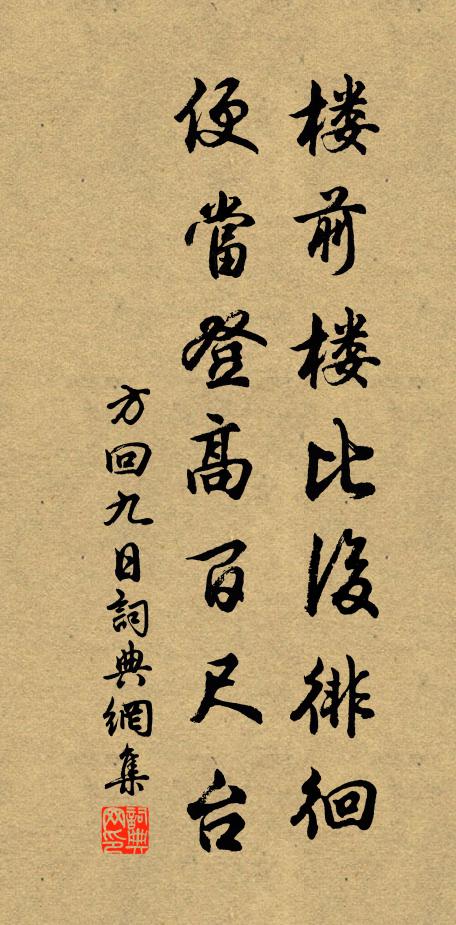 楼前楼比後徘徊
便當登高百尺台
方回九日詞典網集
詞典网印